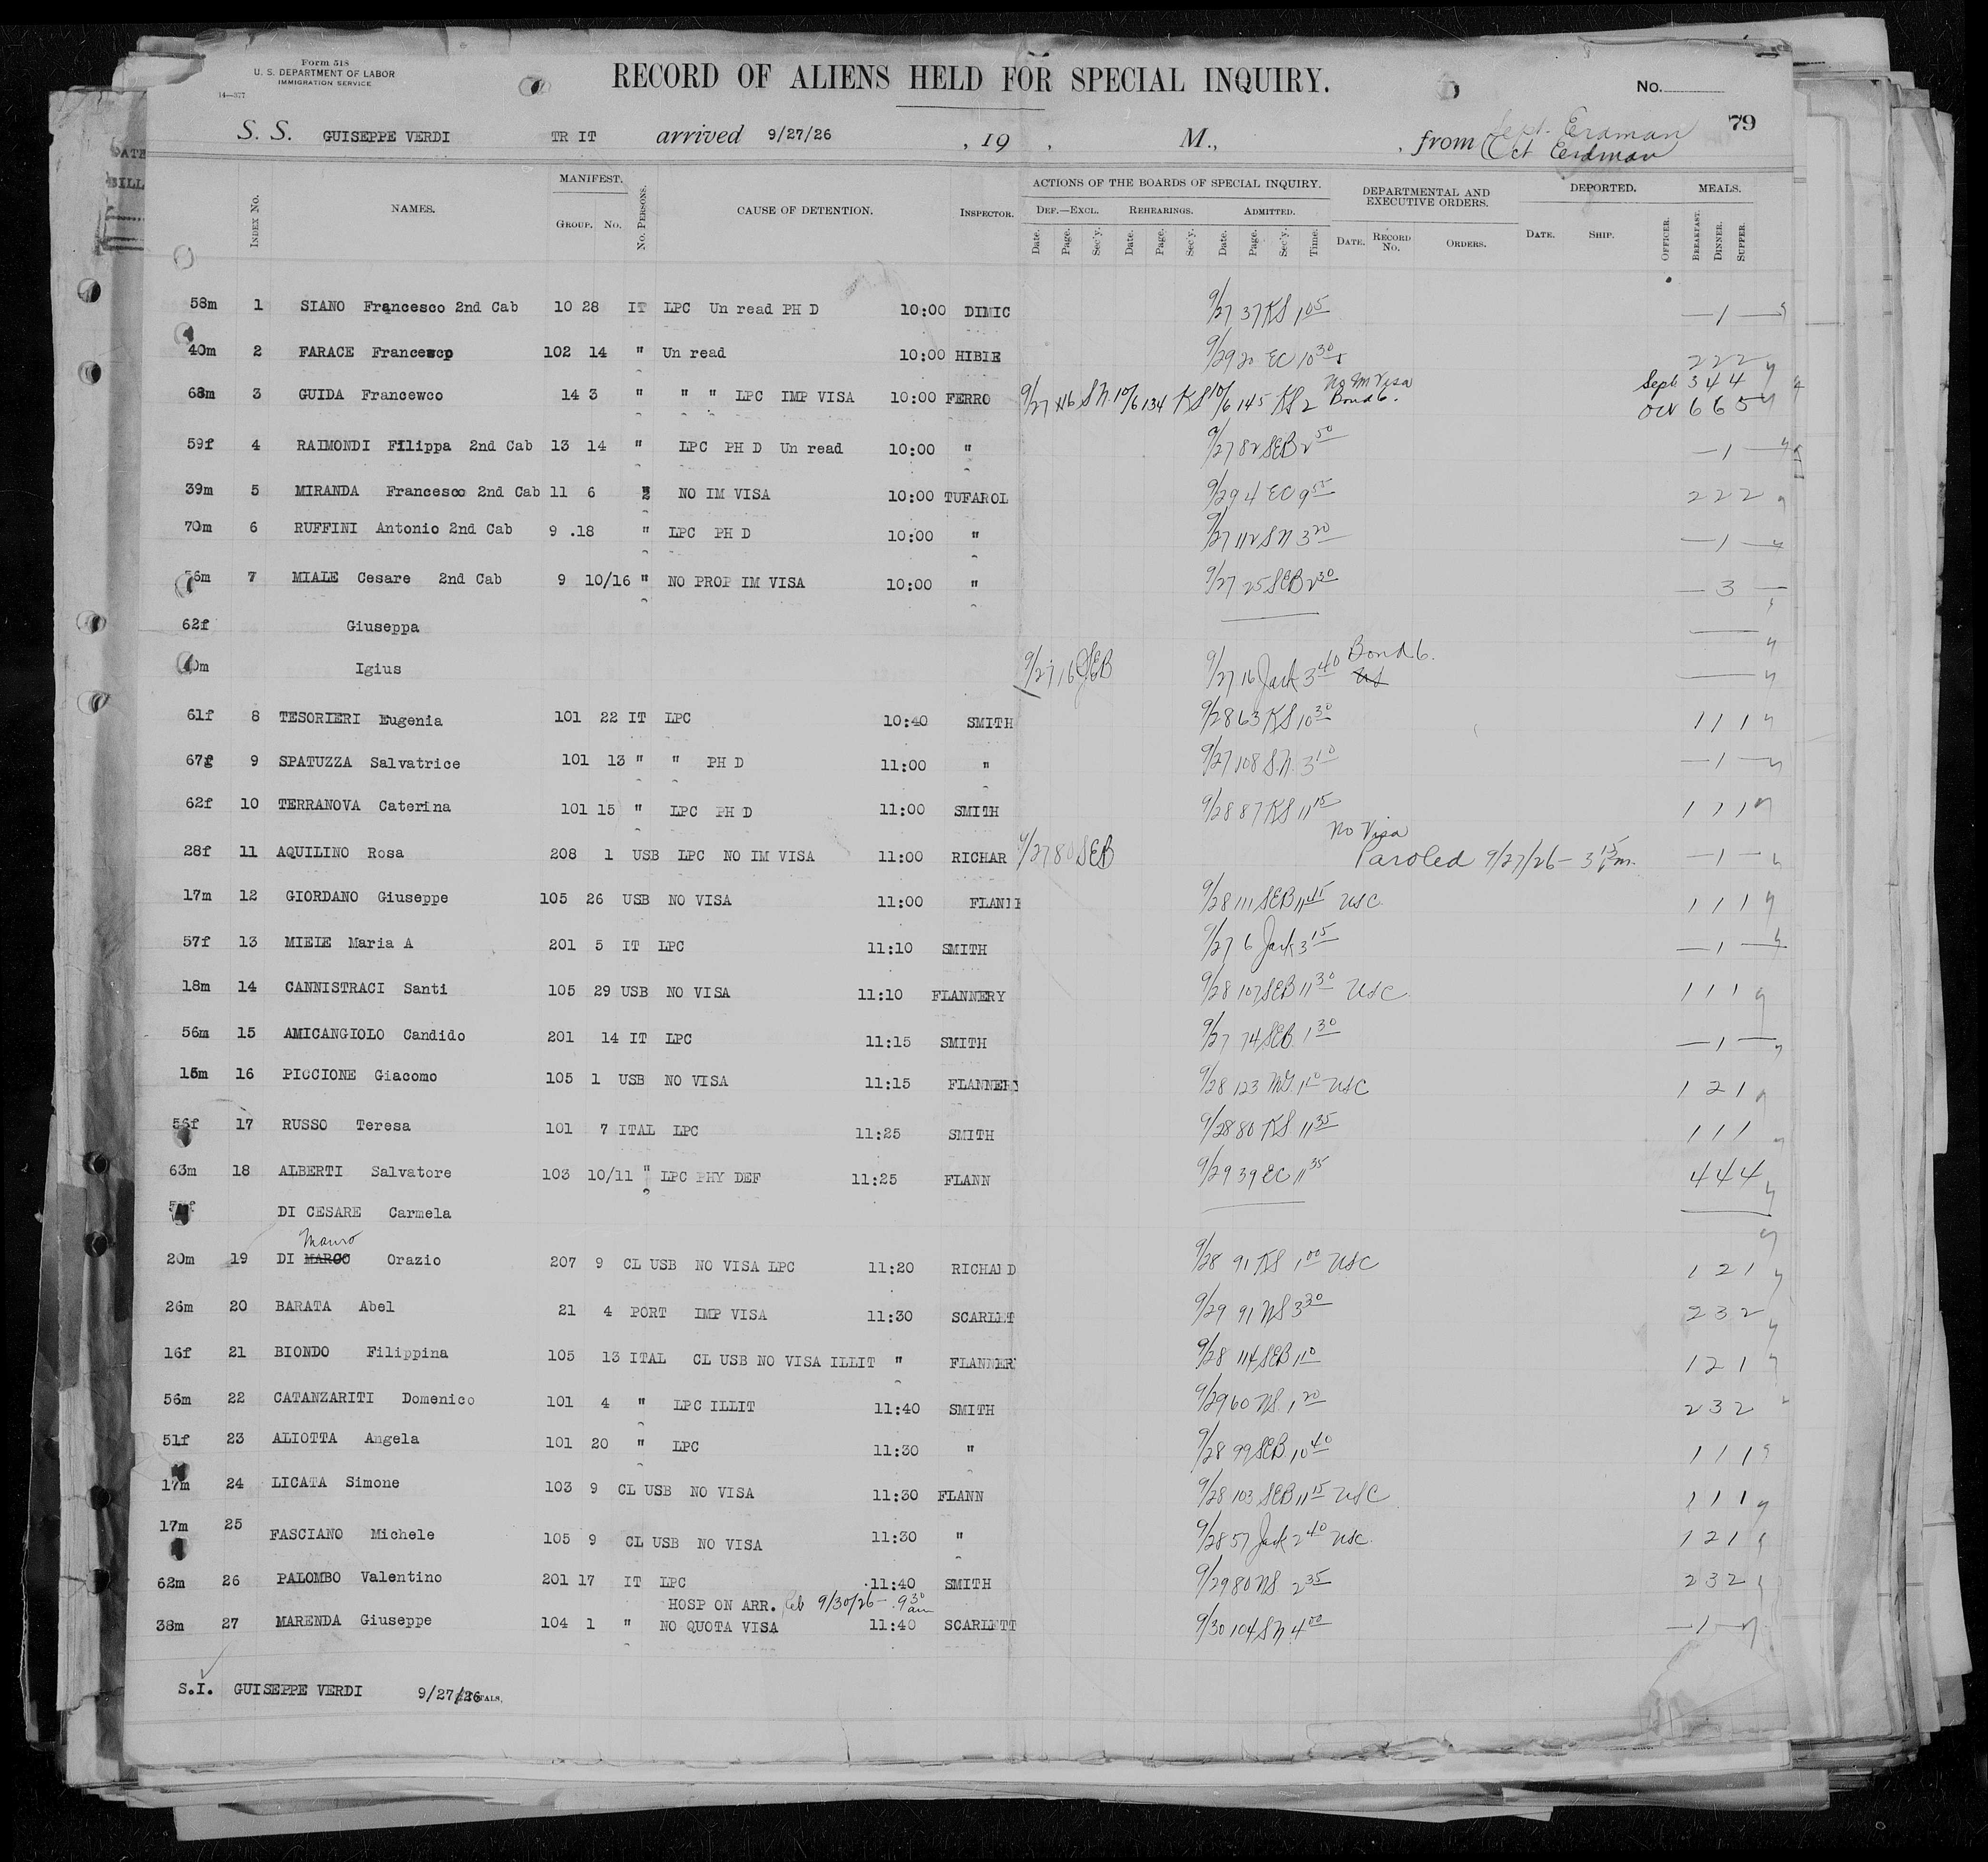 Form 518
U. S. DEPARTMENT OF LABOR
IMMIGRATION SERVICE
14—377
RECORD OF ALIENS HELD FOR SPECIAL INQUIRY.
No.
79
S. S. GUISEPPE VERDI TR IT arrived 9/27/26 , 19 , M., , from Sept. Erdman
Oct Erdman
DATE
BILL
Index No. NAMES. MANIFEST. Group. No. No. Persons. CAUSE OF DETENTION. Inspector. ACTIONS OF THE BOARDS OF SPECIAL INQUIRY. DEPARTMENTAL AND EXECUTIVE ORDERS. DEPORTED. MEALS.
Def.—Excl. Rehearings. Admitted.
Date. Page. Sec'y. Date. Page. Sec'y. Date. Page. Sec'y. Time. Date. Record No. Orders. Date. Ship. Officer. Breakfast. Dinner. Supper.
58m 1 SIANO Francesco 2nd Cab 10 28 IT LPC Un read PH D 10:00 DIMIC 9/27 37 KS 1 05 — 1 —
40m 2 FARACE Francewcp 102 14 " Un read 10:00 HIBIE 9/29 20 EC 10 30 2 2 2
No Im Visa Sept 3 4 4
68m 3 GUIDA Francewco 14 3 " " " LPC IMP VISA 10:00 FERRO 9/27 116 S N. 10/6 134 KS 10/6 145 KS 2 Bond 6. Oct 6 6 5
59f 4 RAIMONDI Filippa 2nd Cab 13 14 " LPC PH D Un read 10:00 " 9/27 82 SEB 2 50 — 1 —
39m 5 MIRANDA Francesco 2nd Cab 11 6 " NO IM VISA 10:00 TUFAROL 9/29 4 EC 9 55 2 2 2
70m 6 RUFFINI Antonio 2nd Cab 9 .18 " LPC PH D 10:00 " 9/27 112 S N 3 20 — 1 —
56m 7 MIALE Cesare 2nd Cab 9 10/16 " NO PROP IM VISA 10:00 " 9/27 25 SEB 2 30 — 3 —
62f Giuseppa
Bond 6.
Igius 9/27 16 SEB 9/27 16 Jack 3 40
61f 8 TESORIERI Eugenia 101 22 IT LPC 10:40 SMITH 9/28 63 KS 10 30 1 1 1
67f 9 SPATUZZA Salvatrice 101 13 " " PH D 11:00 " 9/27 108 S.N. 3 10 — 1 —
62f 10 TERRANOVA Caterina 101 15 " LPC PH D 11:00 SMITH 9/28 87 KS 11 15 1 1 1
No Visa
28f 11 AQUILINO Rosa 208 1 USB LPC NO IM VISA 11:00 RICHAR 9/27 80 SEB Paroled 9/27/26 — 3 15 Pm. — 1 —
17m 12 GIORDANO Giuseppe 105 26 USB NO VISA 11:00 FLANN 9/28 111 SEB 11 45 USC 1 1 1
57f 13 MIELE Maria A 201 5 IT LPC 11:10 SMITH 9/27 6 Jack 3 15 — 1 —
18m 14 CANNISTRACI Santi 105 29 USB NO VISA 11:10 FLANNERY 9/28 107 SEB 11 30 USC 1 1 1
56m 15 AMICANGIOLO Candido 201 14 IT LPC 11:15 SMITH 9/27 74 SEB 1 30 — 1 —
15m 16 PICCIONE Giacomo 105 1 USB NO VISA 11:15 FLANNERY 9/28 123 USC 1 2 1
56f 17 RUSSO Teresa 101 7 ITAL LPC 11:25 SMITH 9/28 80 KS 11 35 1 1 1
63m 18 ALBERTI Salvatore 103 10/11 " LPC PHY DEF 11:25 FLANN 9/29 39 EC 11 35 4 4 4
DI CESARE Carmela
Mauro
20m 19 DI MARCO Orazio 207 9 CL USB NO VISA LPC 11:20 RICHARD 9/28 91 KS 1 00 USC 1 2 1
26m 20 BARATA Abel 21 4 PORT IMP VISA 11:30 SCARLET 9/29 91 NS 3 30 2 3 2
16f 21 BIONDO Filippina 105 13 ITAL CL USB NO VISA ILLIT " FLANNER 9/28 114 SEB 1 10 1 2 1
56m 22 CATANZARITI Domenico 101 4 " LPC ILLIT 11:40 SMITH 9/29 60 NS 1 20 2 3 2
51f 23 ALIOTTA Angela 101 20 " LPC 11:30 " 9/28 99 SEB 10 40 1 1 1
17m 24 LICATA Simone 103 9 CL USB NO VISA 11:30 FLANN 9/28 103 SEB 11 15 USC 1 1 1
17m 25 FASCIANO Michele 105 9 CL USB NO VISA 11:30 " 9/28 57 Jack 2 40 USC. 1 2 1
62m 26 PALOMBO Valentino 201 17 IT LPC 11:40 SMITH 9/29 80 NS 2 35 2 3 2
HOSP ON ARR. 9/30/26 — 9 30 am
38m 27 MARENDA Giuseppe 104 1 " NO QUOTA VISA 11:40 SCARLETT 9/30 104 S N 4 00 — 1 —
S.I. GUISEPPE VERDI 9/27/26 TOTALS,